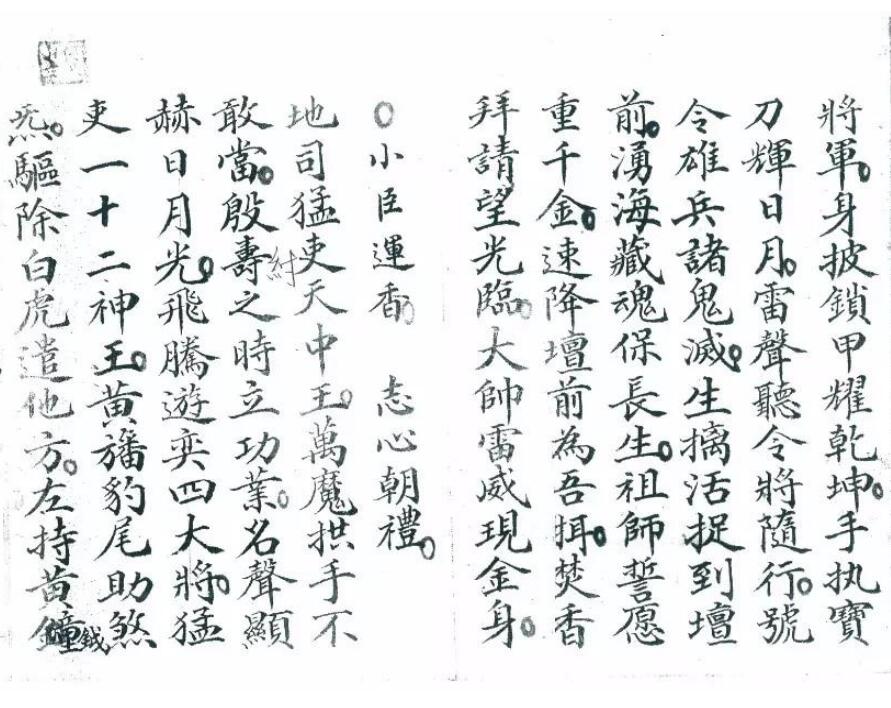 將軍。身披鎖甲耀乾坤。手执寶
刀輝日月。雷聲聽令將隨行。號
令雄兵諸鬼滅。生擒活捉到壇
前。湧海藏魂保長生。祖師誓愿
重千金。速降壇前為吾拜。焚香
拜請望光臨。大帥雷威現金身。
○小臣運香。 志心朝禮。
地司猛吏天中王。萬魔拱手不
敢當。殷壽紂之時立功業。名聲顯
赫日月光。飛騰遊奕四大將。猛
吏一十二神王。黃旛豹尾助煞
炁。驅除白虎遣他方。左持黃鐘鉞